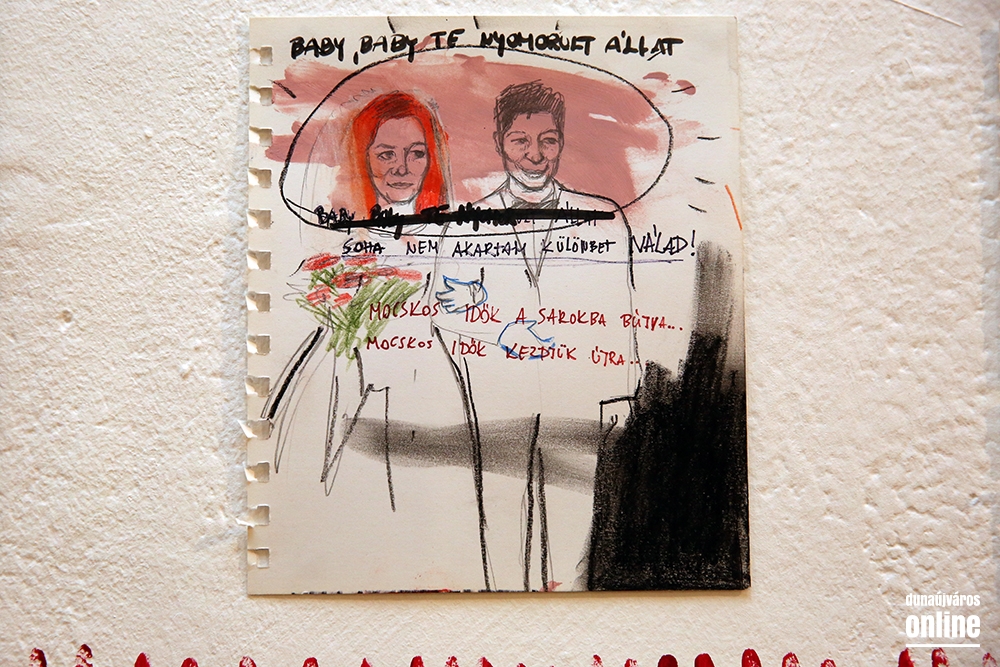 BABY, BABY TE NYOMORULT ÁLLAT
BABY BABY TE NYOMORULT ÁLLAT
SOHA NEM AKARTAM KÜLÖNBET NÁLAD!
MOCSKOS IDŐK A SAROKBA BÚJVA...
MOCSKOS IDŐK KEZDJÜK ÚJRA...
dunaújváros
online